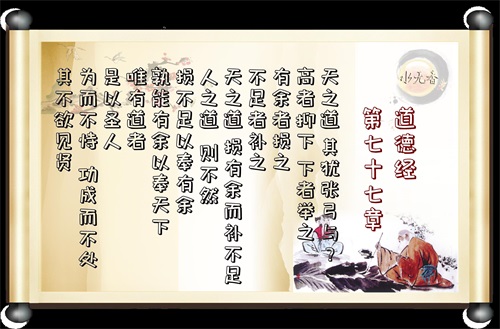 道德经
第七十七章
天之道 其犹张弓与？
高者抑下 下者举之
有余者损之
不足者补之
天之道 损有余而补不足
人之道 则不然
损不足以奉有余
孰能有余以奉天下
唯有道者
是以圣人
为而不恃 功成而不处
其不欲见贤
水无香